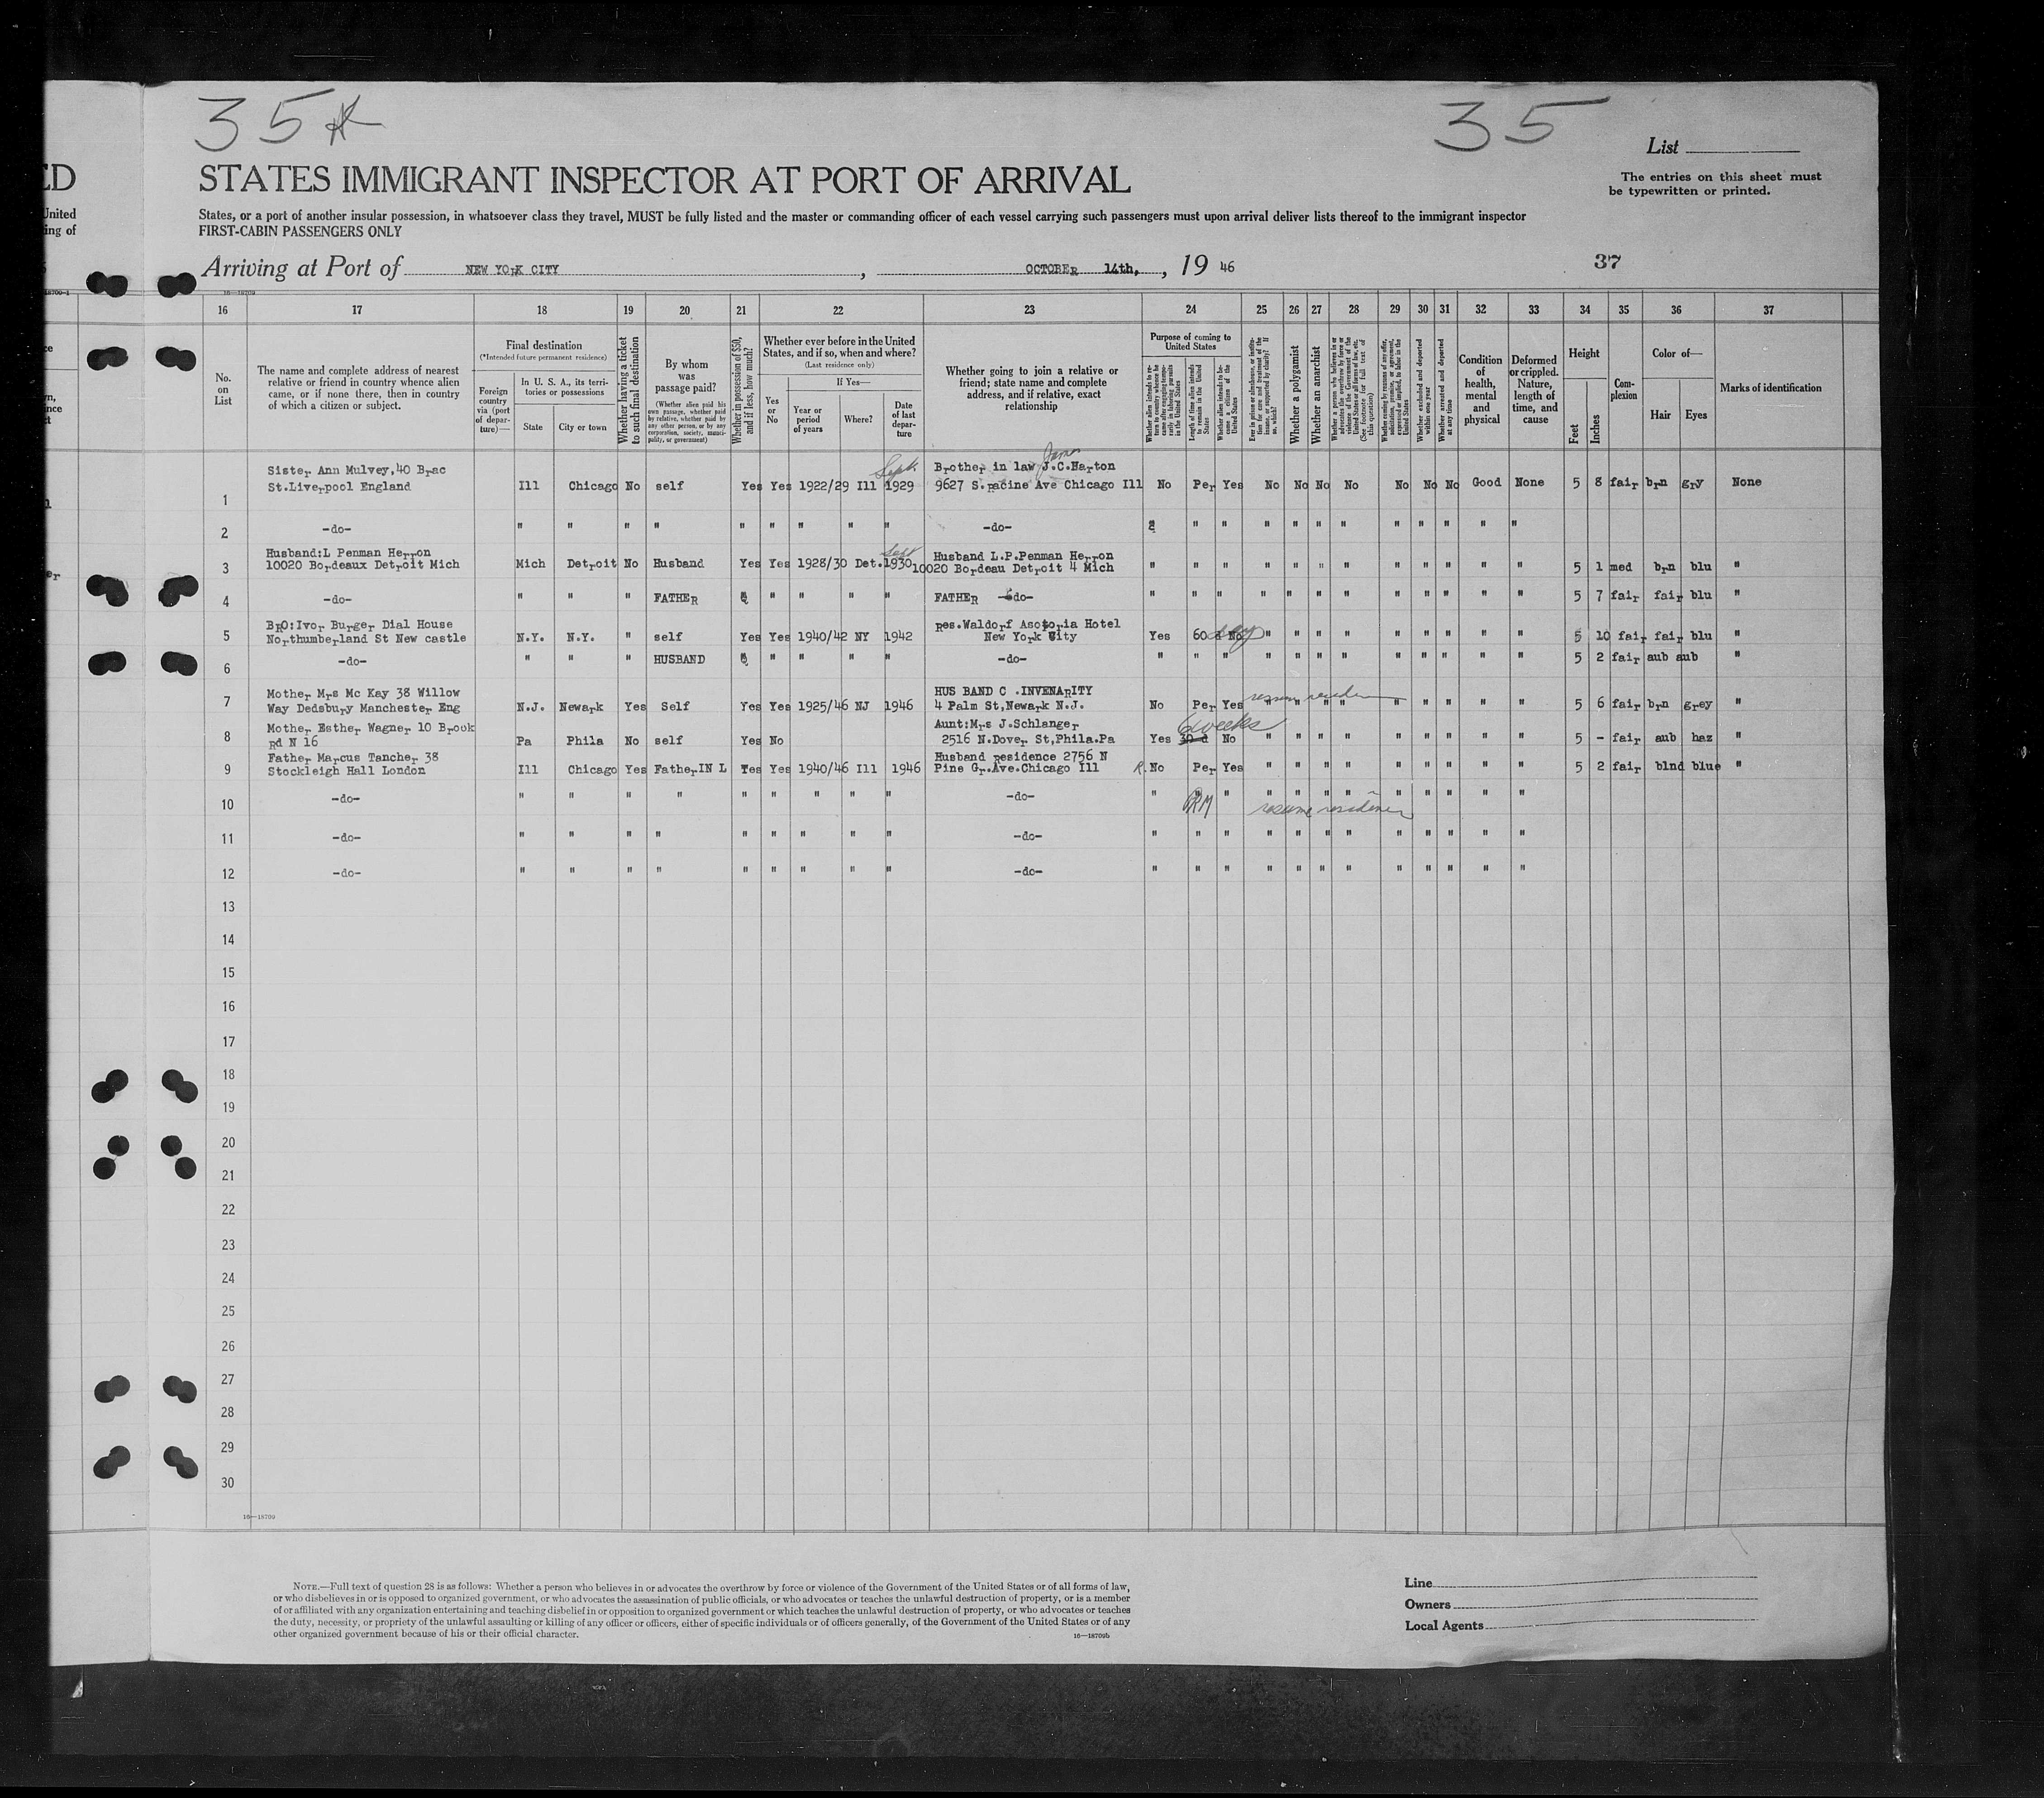 35 35
List
ED STATES IMMIGRANT INSPECTOR AT PORT OF ARRIVAL
The entries on this sheet must
be typewritten or printed.
United States, or a port of another insular possession, in whatsoever class they travel, MUST be fully listed and the master or commanding officer of each vessel carrying such passengers must upon arrival deliver lists thereof to the immigrant inspector
ing of FIRST-CABIN PASSENGERS ONLY
Arriving at Port of NEW YORK CITY , OCTOBER 14th, , 19 46 37
16—18709
16 17 18 19 20 21 22 23 24 25 26 27 28 29 30 31 32 33 34 35 36 37
No. on List
The name and complete address of nearest
relative or friend in country whence alien
came, or if none there, then in country
of which a citizen or subject.
Final destination
(*Intended future permanent residence)
Foreign country via (port of departure)—
In U. S. A., its territories or possessions
State City or town
Whether having a ticket to such final destination
By whom was passage paid?
(Whether alien paid his own passage, whether paid by relative, whether paid by any other person, or by any corporation, society, municipality, or government)
Whether in possession of $50, and if less, how much?
Whether ever before in the United
States, and if so, when and where?
(Last residence only)
Yes or No
If Yes—
Year or period of years
Where?
Date of last departure
Whether going to join a relative or
friend; state name and complete
address, and if relative, exact
relationship
Purpose of coming to
United States
Whether alien intends to return to country whence he came after engaging temporarily in laboring pursuits in the United States
Length of time alien intends to remain in the United States
Whether alien intends to become a citizen of the United States
Ever in prison or almshouse, or institution for care and treatment of the insane, or supported by charity? If so, which?
Whether a polygamist
Whether an anarchist
Whether a person who believes in or advocates the overthrow by force or violence of the Government of the United States or all forms of law, etc. (See footnote for full text of this question)
Whether coming by reasons of any offer, solicitation, promise, or agreement, expressed or implied, to labor in the United States
Whether excluded and deported within one year
Whether arrested and deported at any time
Condition of health, mental and physical
Deformed or crippled. Nature, length of time, and cause
Height
Feet Inches
Complexion
Color of—
Hair Eyes
Marks of identification
Sept. James
Sister Ann Mulvey,40 Brac Brother in law J.C.Harton
1 St.Liverpool England Ill Chicago No self Yes Yes 1922/29 Ill 1929 9627 S.racine Ave Chicago Ill No Per Yes No No No No No No No Good None 5 8 fair brn gry None
2 -do- " " " " " " " " " -do- " " " " " " " " " " "
Husband:L Penman Herron Sept Husband L.P.Penman Herron
3 10020 Bordeaux Detroit Mich Mich Detroit No Husband Yes Yes 1928/30 Det. 1930 10020 Bordeau Detroit 4 Mich " " " " " " " " " " " " 5 1 med brn blu "
4 -do- " " " FATHER " " " " FATHER -do- " " " " " " " " " " " " 5 7 fair fair blu "
BRO:Ivor Burger Dial House Res.Waldorf Asotoria Hotel
5 Northumberland St New castle N.Y. N.Y. " self Yes Yes 1940/42 NY 1942 New York City Yes 60 d No " " " " " " " " " 5 10 fair fair blu "
6 -do- " " " HUSBAND " " " " -do- " " " " " " " " " " " " 5 2 fair aub aub "
Mother Mrs Mc Kay 38 Willow HUS BAND C .INVENARITY resume residence
7 Way Dedsbury Manchester Eng N.J. Newark Yes Self Yes Yes 1925/46 NJ 1946 4 Palm St,Newark N.J. No Per Yes " " " " " " " " " 5 6 fair brn grey "
Mother Esther Wagner 10 Brook Aunt:Mrs J.Schlanger 6 weeks
8 Rd N 16 Pa Phila No self Yes No 2516 N.Dover St,Phila.Pa Yes 30 d No " " " " " " " " " 5 - fair aub haz "
Father Marcus Tancher 38 Husband residence 2756 N
9 Stockleigh Hall London Ill Chicago Yes FatherIN L Yes Yes 1940/46 Ill 1946 Pine Gr.Ave.Chicago Ill R. No Per Yes " " " " " " " " " 5 2 fair blnd blue "
10 -do- " " " " " " " " " -do- " " " " " " " " " " "
resume residence
11 -do- " " " " " " " " " -do- " " " " " " " " " " " "
12 -do- " " " " " " " " " -do- " " " " " " " " " " " "
13
14
15
16
17
18
19
20
21
22
23
24
25
26
27
28
29
30
16—18709
NOTE.—Full text of question 28 is as follows: Whether a person who believes in or advocates the overthrow by force or violence of the Government of the United States or of all forms of law,
or who disbelieves in or is opposed to organized government, or who advocates the assassination of public officials, or who advocates or teaches the unlawful destruction of property, or is a member
of or affiliated with any organization entertaining and teaching disbelief in or opposition to organized government or which teaches the unlawful destruction of property, or who advocates or teaches
the duty, necessity, or propriety of the unlawful assaulting or killing of any officer or officers, either of specific individuals or of officers generally, of the Government of the United States or of any
other organized government because of his or their official character.
16—18709b
Line
Owners
Local Agents